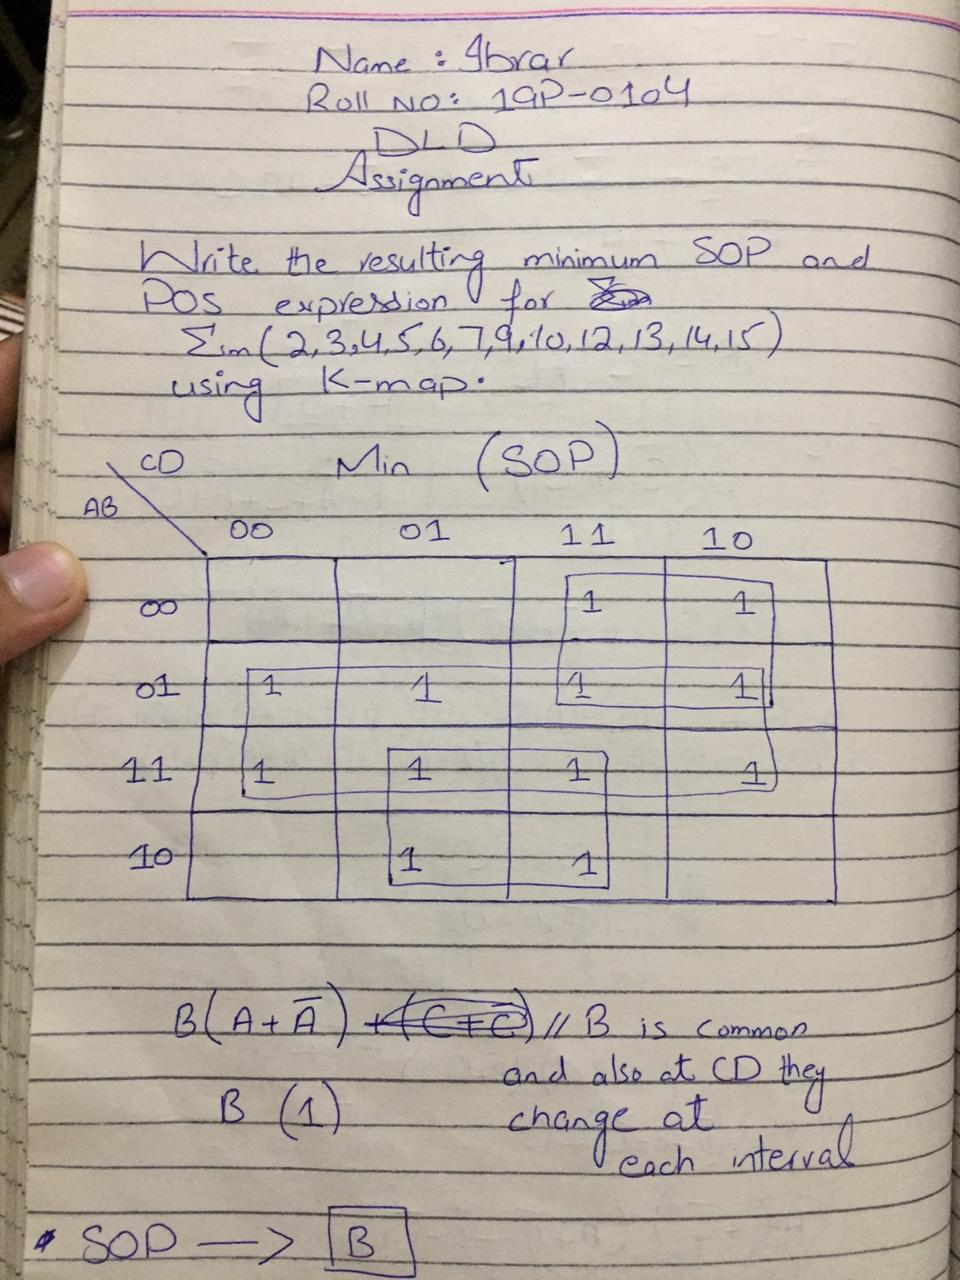 Name : Ibrar
Roll NO: 19P-0104
DLD
Assignment
Write the resulting minimum SOP and
POS expression for
Σm(2,3,4,5,6,7,9,10,12,13,14,15)
using K-map.
CD Min (SOP)
AB
00 01 11 10
00 1 1
01 1 1 1 1
11 1 1 1 1
10 1 1
B(A+Ā) +(C+C̄) // B is common
and also at CD they
B (1) change at
each interval
SOP —> B